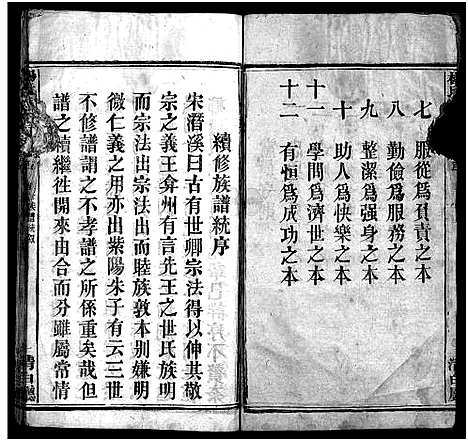 七　服從爲負責之本
八　勤儉爲服務之本
九　整潔爲强身之本
十　助人爲快樂之本
十一　學問爲濟世之本
十二　有恒爲成功之本
續修族譜統序
宋濳溪曰古有世卿宗法得以伸其敬
宗之義王弇州有言先王之世氏族明
而宗法出宗法出而睦族敦本别嫌明
微仁義之用亦出紫陽朱子有云三世
不修譜謂之不孝譜之所係重矣哉但
譜之續繼徃開來由合而分雖屬常情